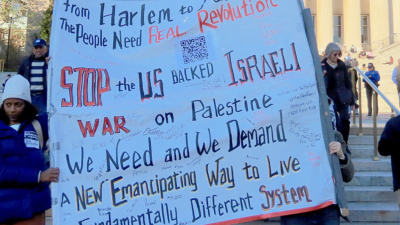 from Harlem to
The People Need REAL REVOLUTION
STOP the US BACKED ISRAELI
WAR on Palestine
We Need and We Demand
A New Emancipating Way to Live
Fundamentally Different System